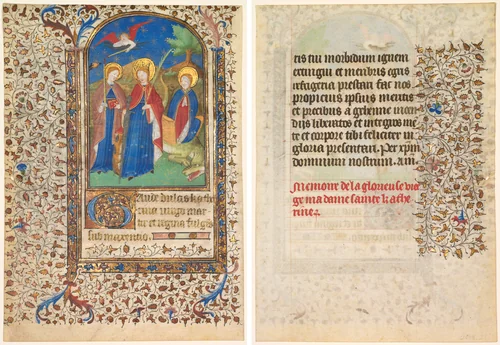 Gaude dulcis kathe
rina uirgo mar
tir et regina fulgens
sub maxentio.
eris tui morbidum ignem
extingui et membris egris
refugeria prestari fac nos
propicius ipsius meritis
et precibus a gehenne incen
diis liberatos et integros me
te et corpore tibi feliciter in
gloria presentari. Per xpm
dominum nostrum. am.
Memoire de la glorieuse vier
ge madame sainte kathe
rine.